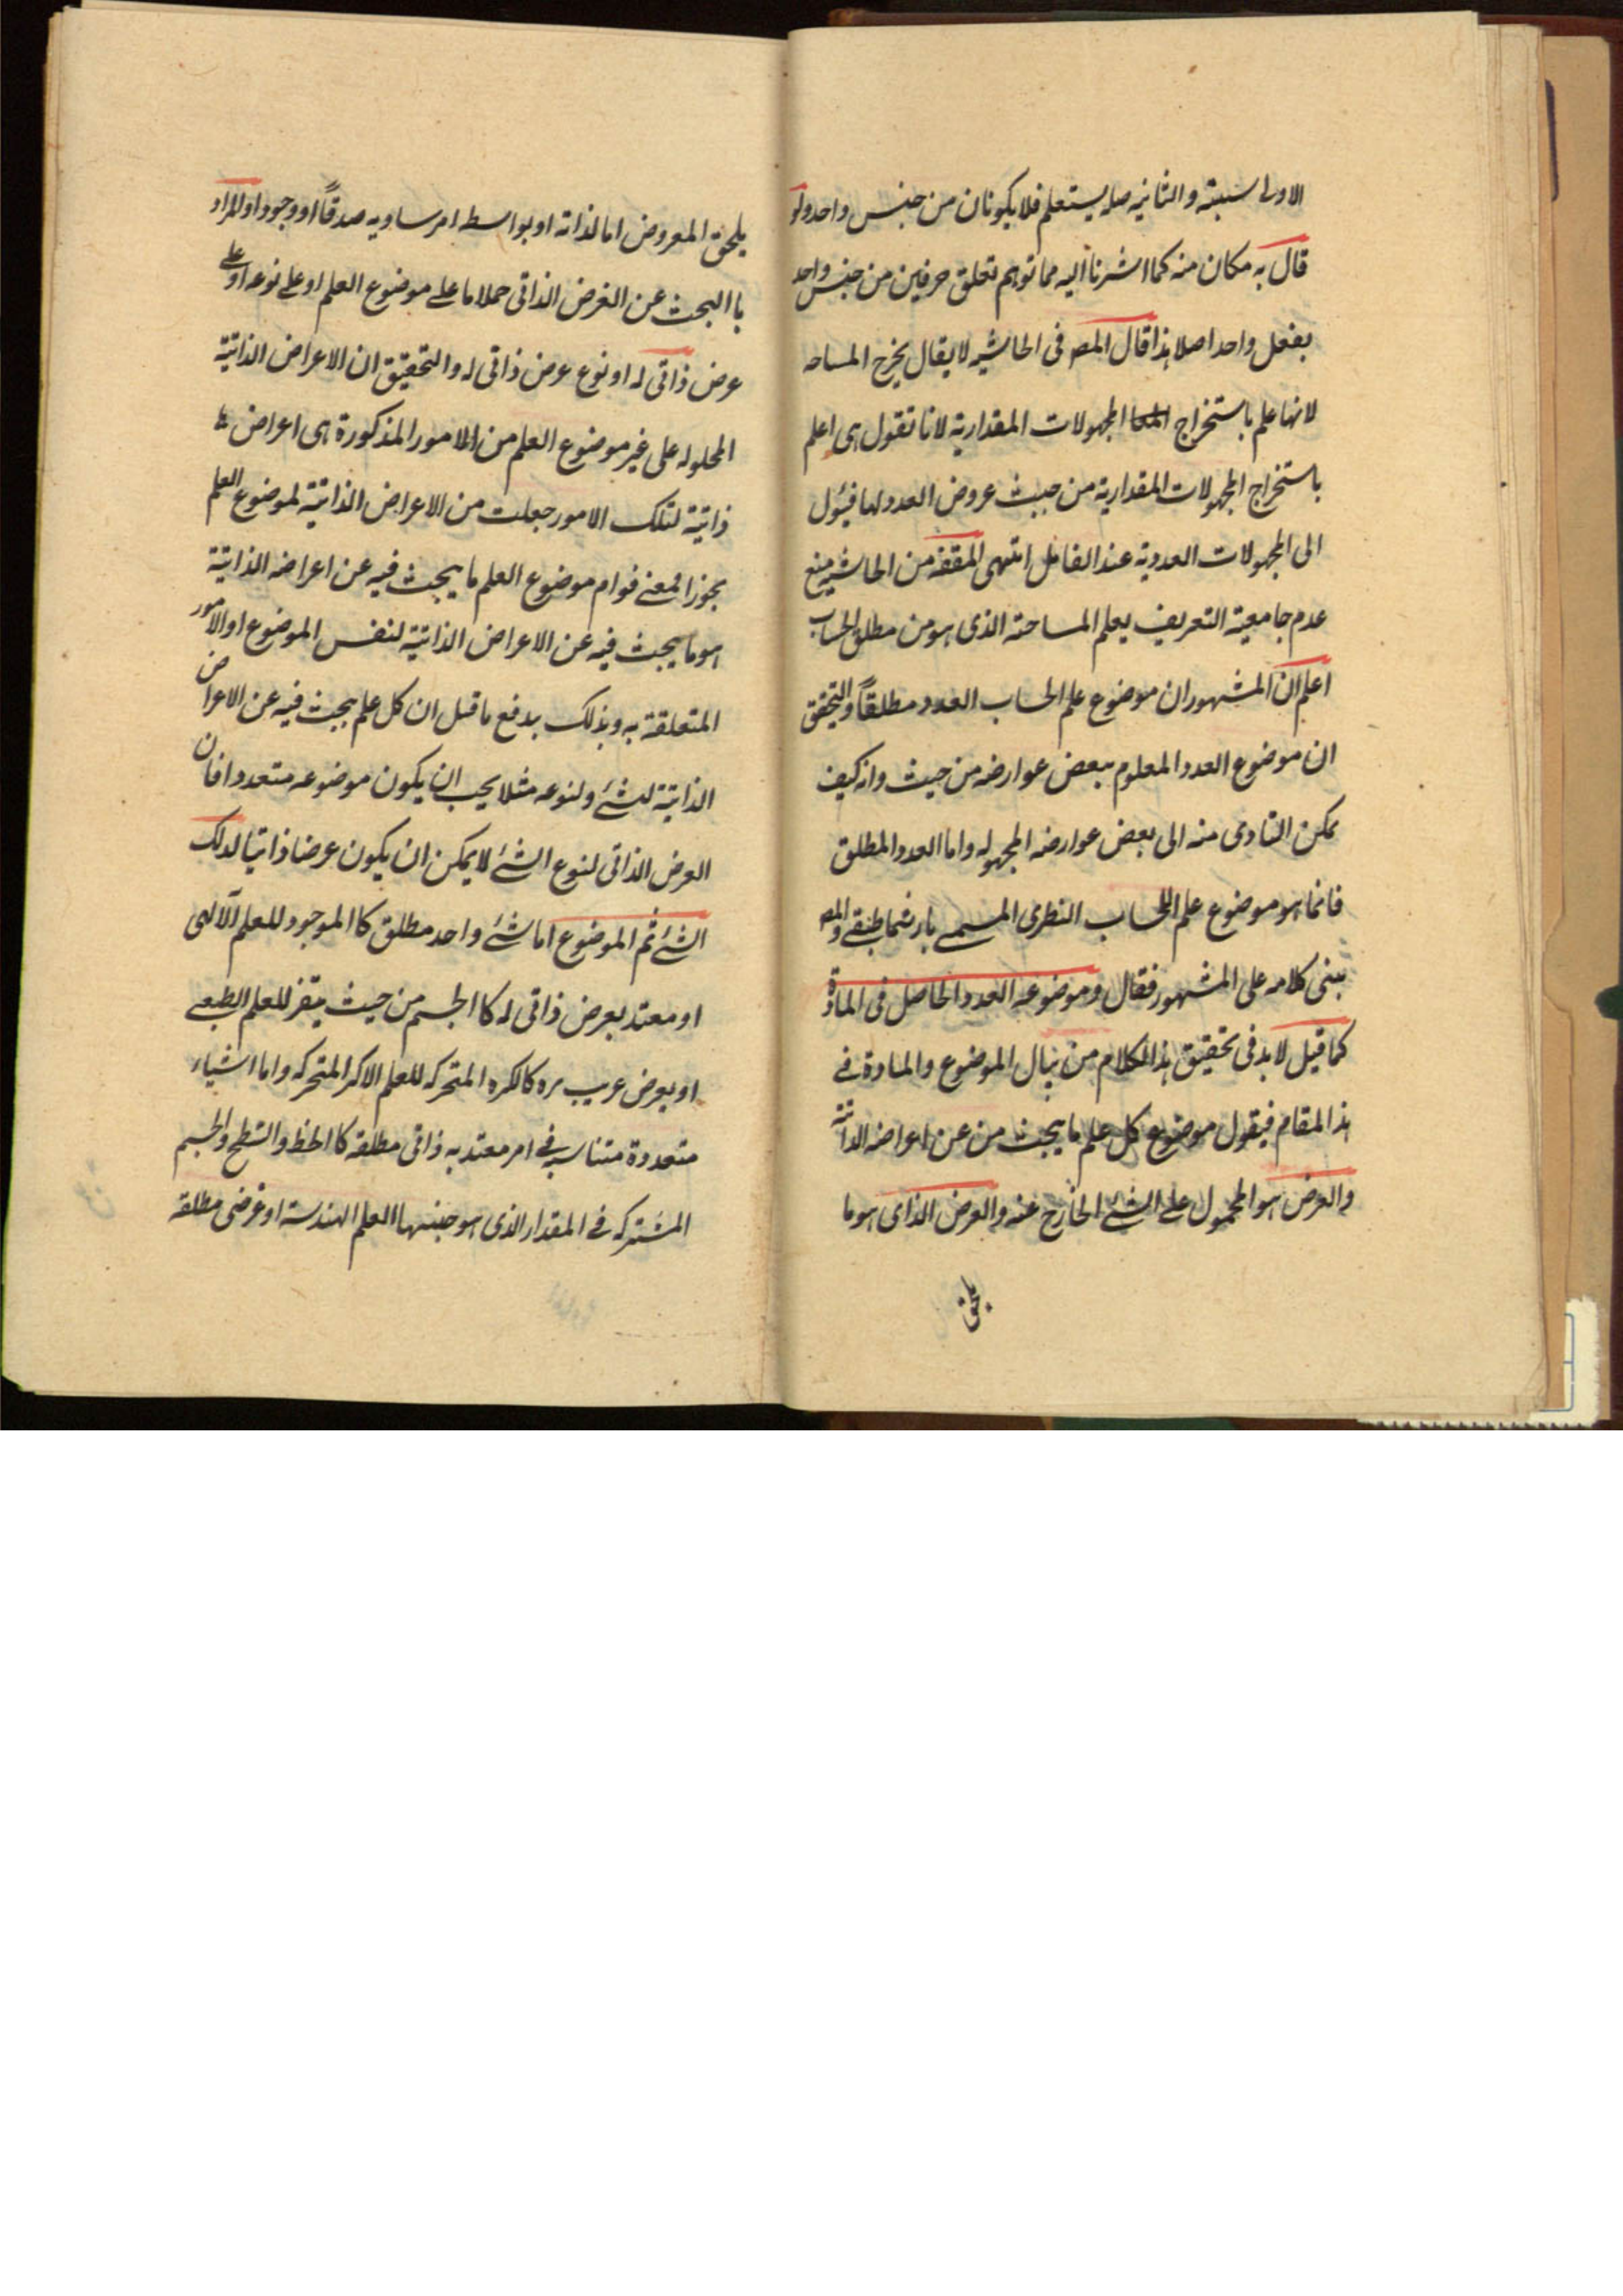 الاولى سببية والثانيه صله يستعلم فلا يكونان من جنس واحد ولو
قال به مكان منه كما اشرنا اليه مما توهم تعلق حرفين من جنس واحد
بفعل واحد اصلا هذا قال المص فى الحاشيه لا يقال يخرج المساحه
لانها علم باستخراج المجهولات المقدارية لانا نقول هى اعلم
باستخراج المجهولات المقدارية من حيث عروض العدد لها فيئول
الى المجهولات العددية عند الفاعل انتهى المقفه من الحاشيه منع
عدم جامعية التعريف يعلم المساحته الذى هو من مطلق الحساب
اعلم ان المشهور ان موضوع علم الحساب العدد مطلقاً والتحقق
ان موضوع العدد المعلوم ببعض عوارضه من حيث وانه كيف
يمكن التادى منه الى بعض عوارضه المجهوله واما العدد المطلق
فانما هو موضوع علم الحساب النظرى المسمے بارثماطيقے والمص
بنى كلامه على المشهور فقال وموضوعه العدد الحاصل فى المادة
كما قيل لا بد فى تحقيق هذا الكلام من بيال الموضوع والمادة فے
هذا المقام فيقول موضوع كل علم ما يبحث من عن اعراضه الذاتية
والعرض هو المحمول علے الشئے الخارج عنه والعرض الذاى هو ما
يلحق
يلحق المعروض اما لذاته او بواسطه امر ساويه صدقاً او وجودا والمراد
با البحث عن العرض الذاتى حملا ما علے موضوع العلم او علے نوعه او علے
عرض ذاتى له او نوع عرض ذاتى له والتحقيق ان الاعراض الذاتية
المحلوله على غير موضوع العلم من الامور المذكورة هى اعراض
ذاتية لتلك الامور جعلت من الاعراض الذاتية لموضوع العلم
بجوزا فمعنے قوام موضوع العلم ما يبحث فيه عن اعراضه الذاتية
هو ما يبحث فيه عن الاعراض الذاتية لنفس الموضوع او الامور
المتعلقة به وبذلك يدفع ما قيل ان كل علم يبحث فيه عن الاعراض
الذاتية لشئے ولنوعه مثلا يجب ان يكون موضوعه متعددا فان
العرض الذاتى لنوع الشئے لا يمكن ان يكون عرضا ذاتيا لذلك
الشئے ثم الموضوع اما شئے واحد مطلق كا الموجود للعلم الآلهى
او معتد بعرض ذاتى له كا الجسم من حيث يتغز للعلم الطبعے
او بعرض عريب مره كالكره المتحركه للعلم الاكر المتحركه واما اشياء
متعددة متناسبه فے امر معتد به ذاتى مطلقه كا الخط والسطح والجسم
المشتركه فے المقدار الذى هو جنسها العلم الهندسة او عرضى مطلقه